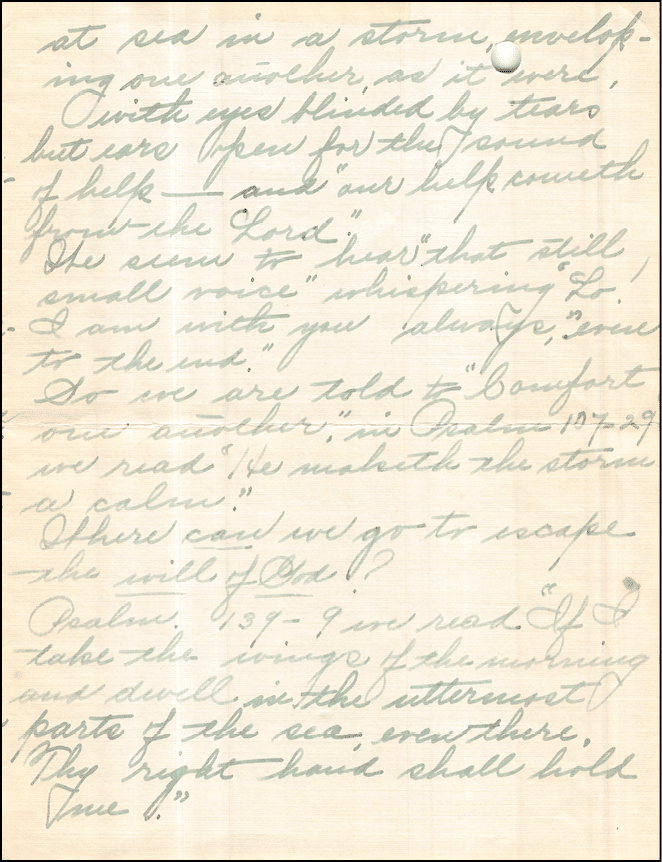 at sea in a storm, envelop-
ing one another, as it were,
with eyes blinded by tears
but ears open for the sound
of help — and "our help cometh
from the Lord."
We seem to hear "that still,
small voice" whispering "Lo
I am with you always," "even
to the end."
So we are told to "Comfort
one another," in Psalm 107-29
we read "He maketh the storm
a calm."
Where can we go to escape
the will of God?
Psalm. 139-9 we read "If I
take the wings of the morning
and dwell in the uttermost
parts of the sea, even there,
Thy right hand shall hold
me."